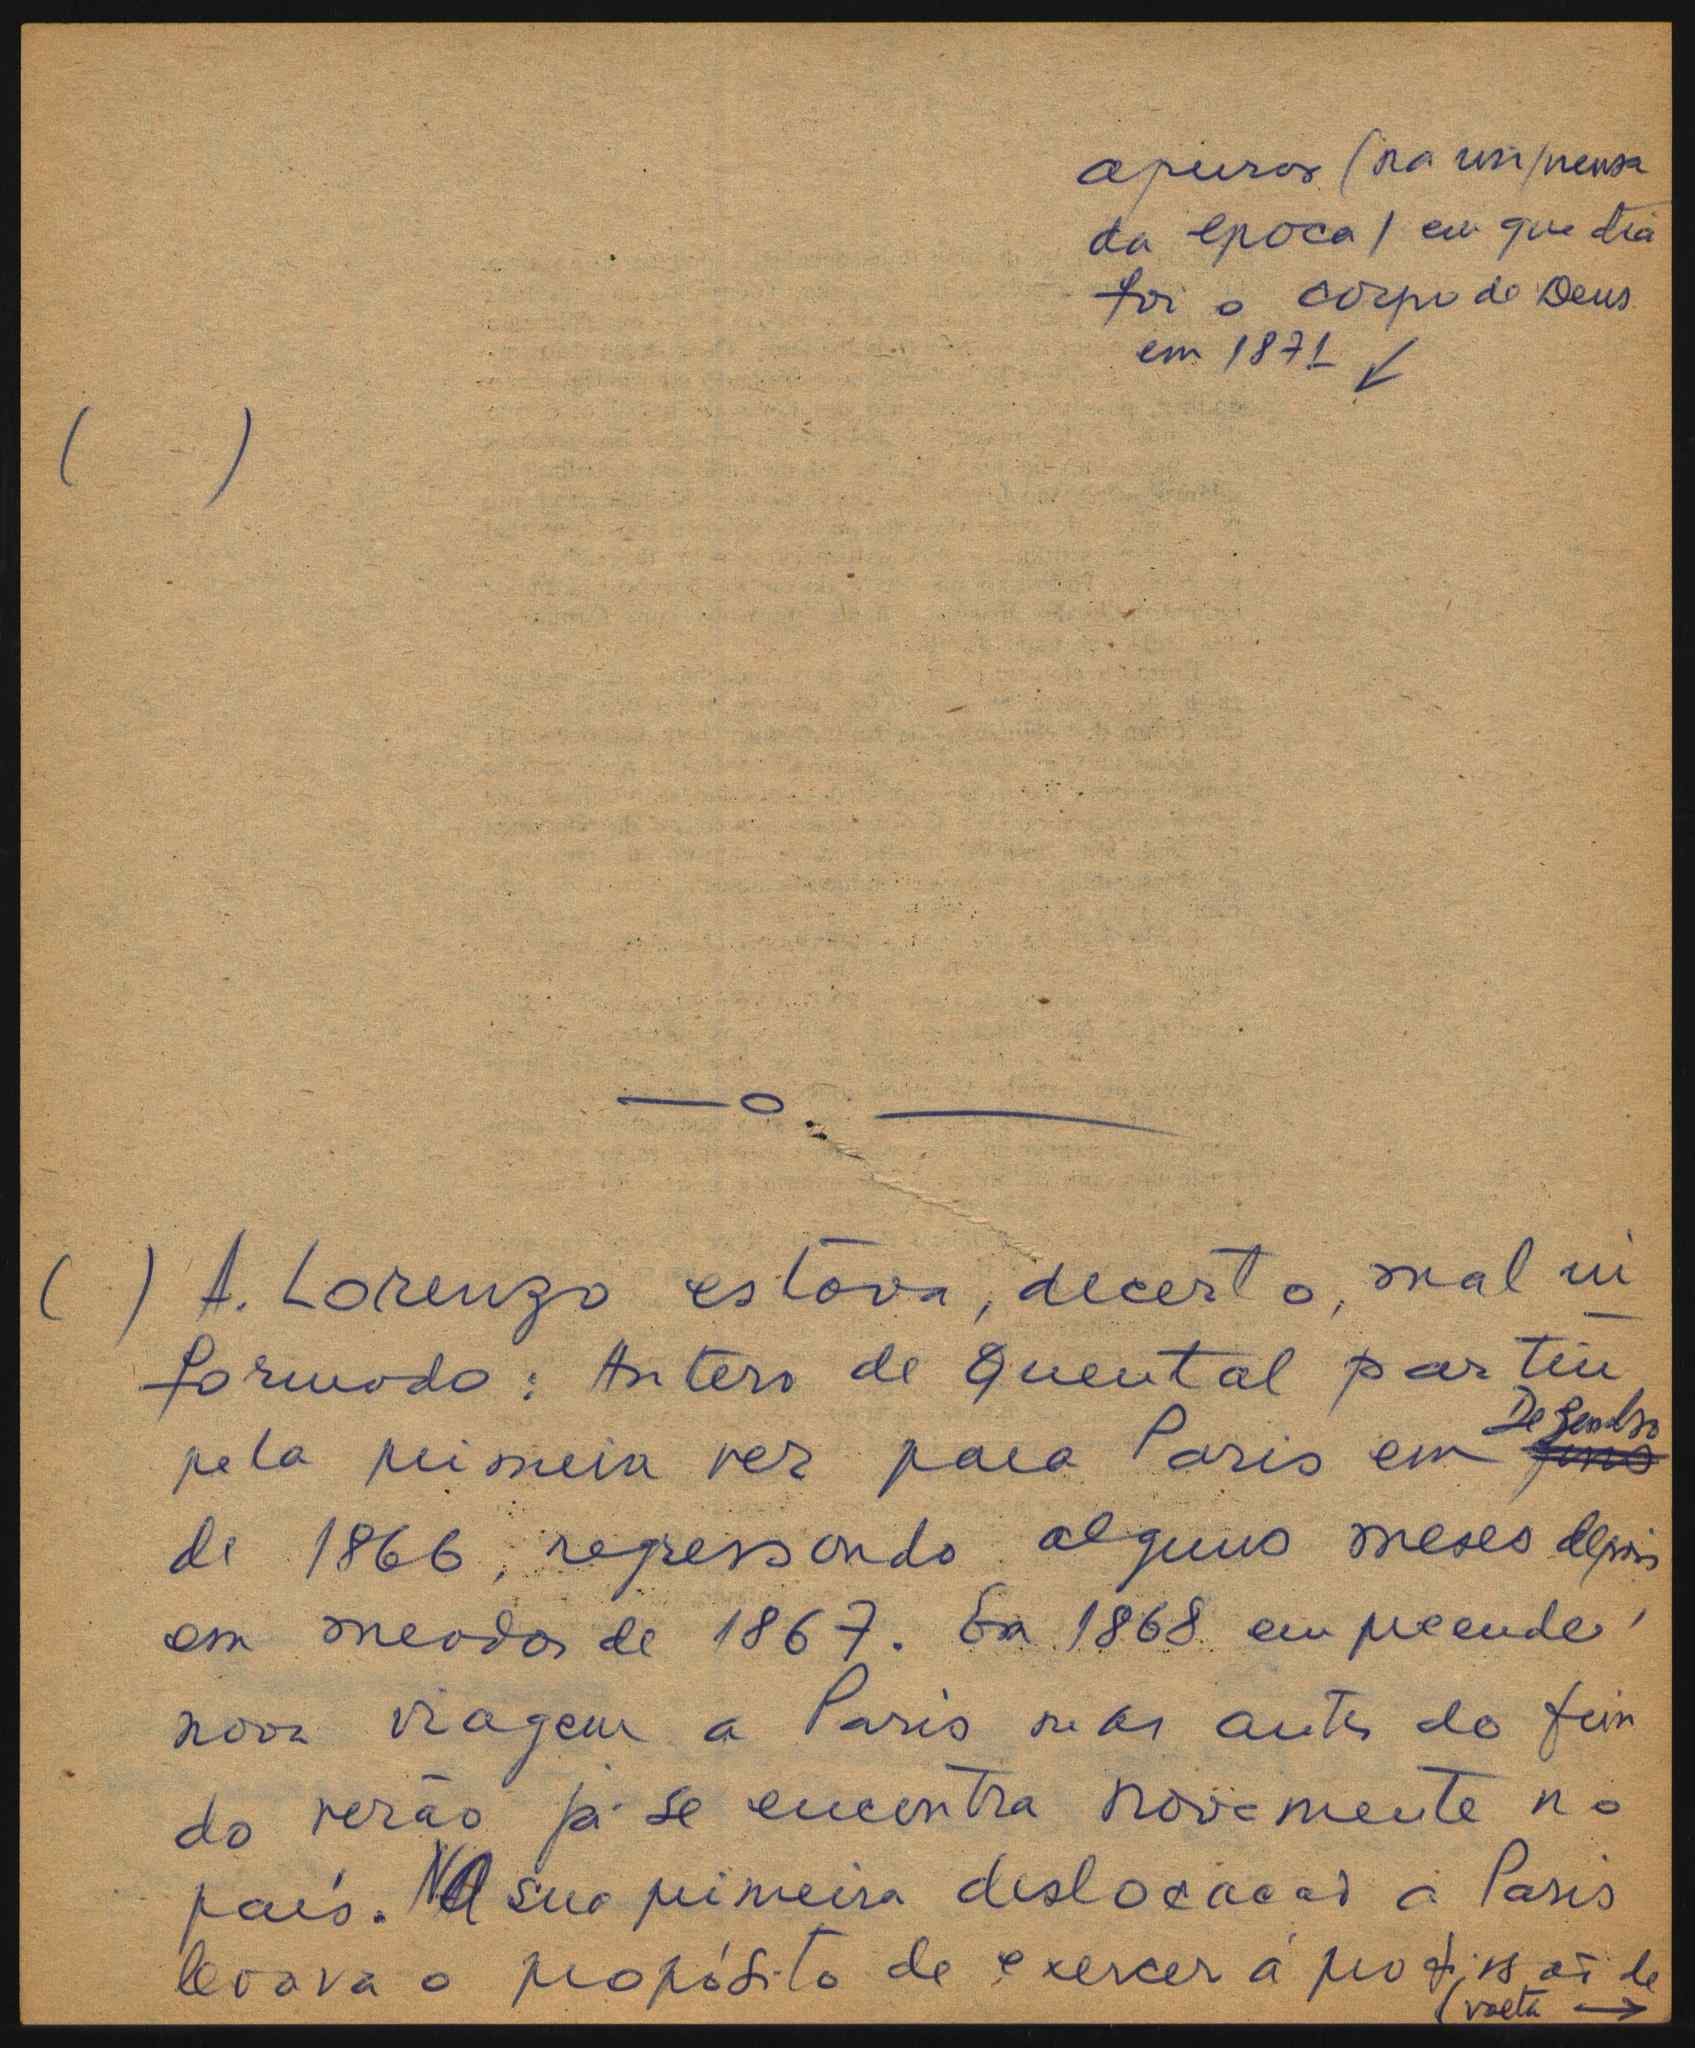 apurar (na imprensa
da epoca) em que dia
foi o corpo de Deus
em 1871 ↙
( )
—o. —
( ) A. Lorenzo estava, decerto, mal in
formado: Antero de Quental partiu
pela primeira vez para Paris em Dezembro
de 1866, regressando alguns meses depois
em meados de 1867. Em 1868 empreende
nova viagem a Paris mas antes do fim
do verão já se encontra novamente no
país. Na sua primeira deslocação a Paris
levava o propósito de exercer a profissão de
(volta →